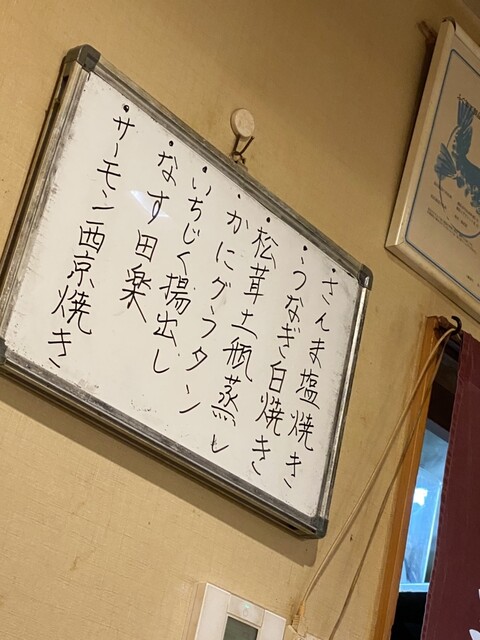 ・さんま塩焼き
・うなぎ白焼き
・松茸土瓶蒸し
・かにグラタン
・いちじく揚出し
・なす田楽
・サーモン西京焼き